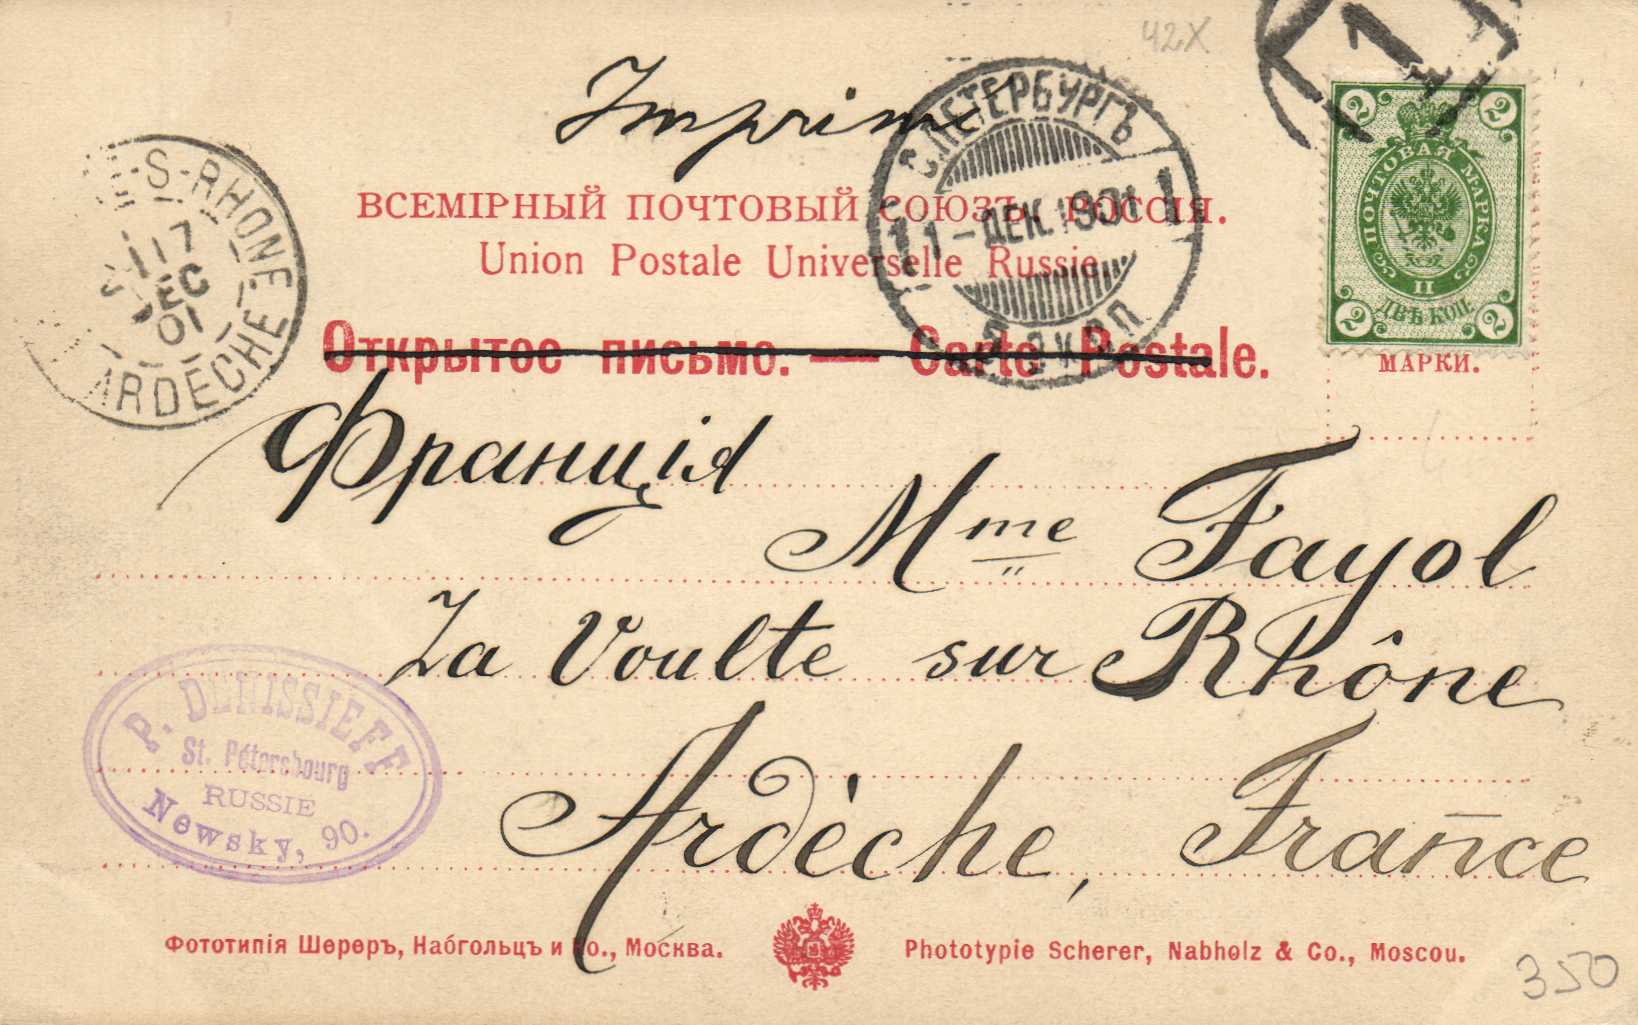 42X
1
Imprimé
С.ПЕТЕРБУРГЪ
1 1 - ДЕК. 1901 1
ПОЧТОВАЯ МАРКА
2 2
II
ДВѢ КОП.
2 2
ВСЕМІРНЫЙ ПОЧТОВЫЙ СОЮЗЪ. РОССІЯ.
Union Postale Universelle Russie.
S-RHONE
17
DEC
01
ARDECHE
Открытое письмо. — Carte Postale.
МАРКИ.
Франція
Mme Fayol
La Voulte sur Rhône
Ardèche, France
P. DENISSIEFF
St. Pétersbourg
RUSSIE
Newsky, 90.
Фототипія Шереръ, Набгольцъ и Ко., Москва.
Phototypie Scherer, Nabholz & Co., Moscou.
350